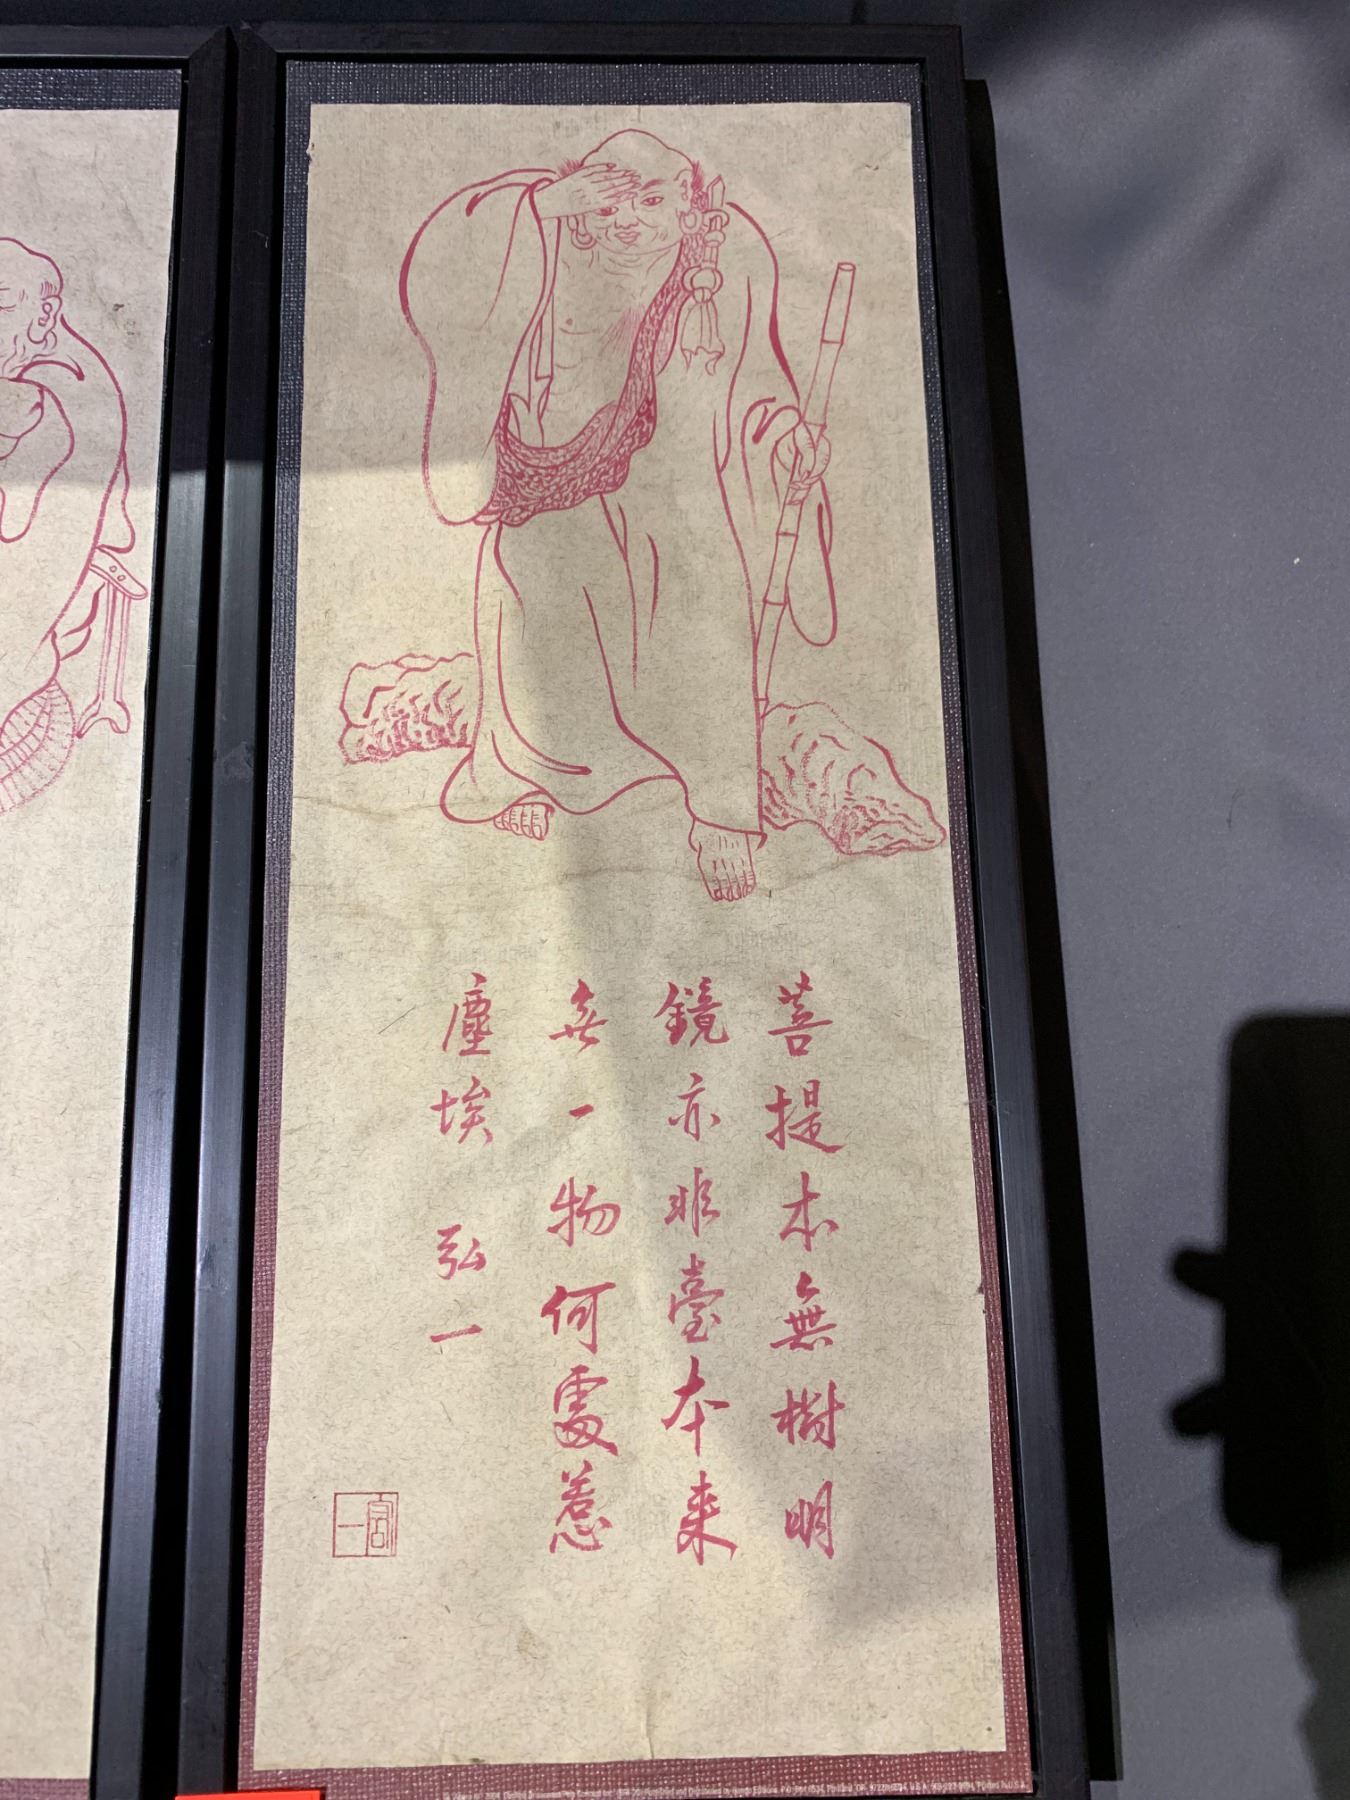 菩提本無樹明
鏡亦非臺本来
無一物何處惹
塵埃 弘一
弘一